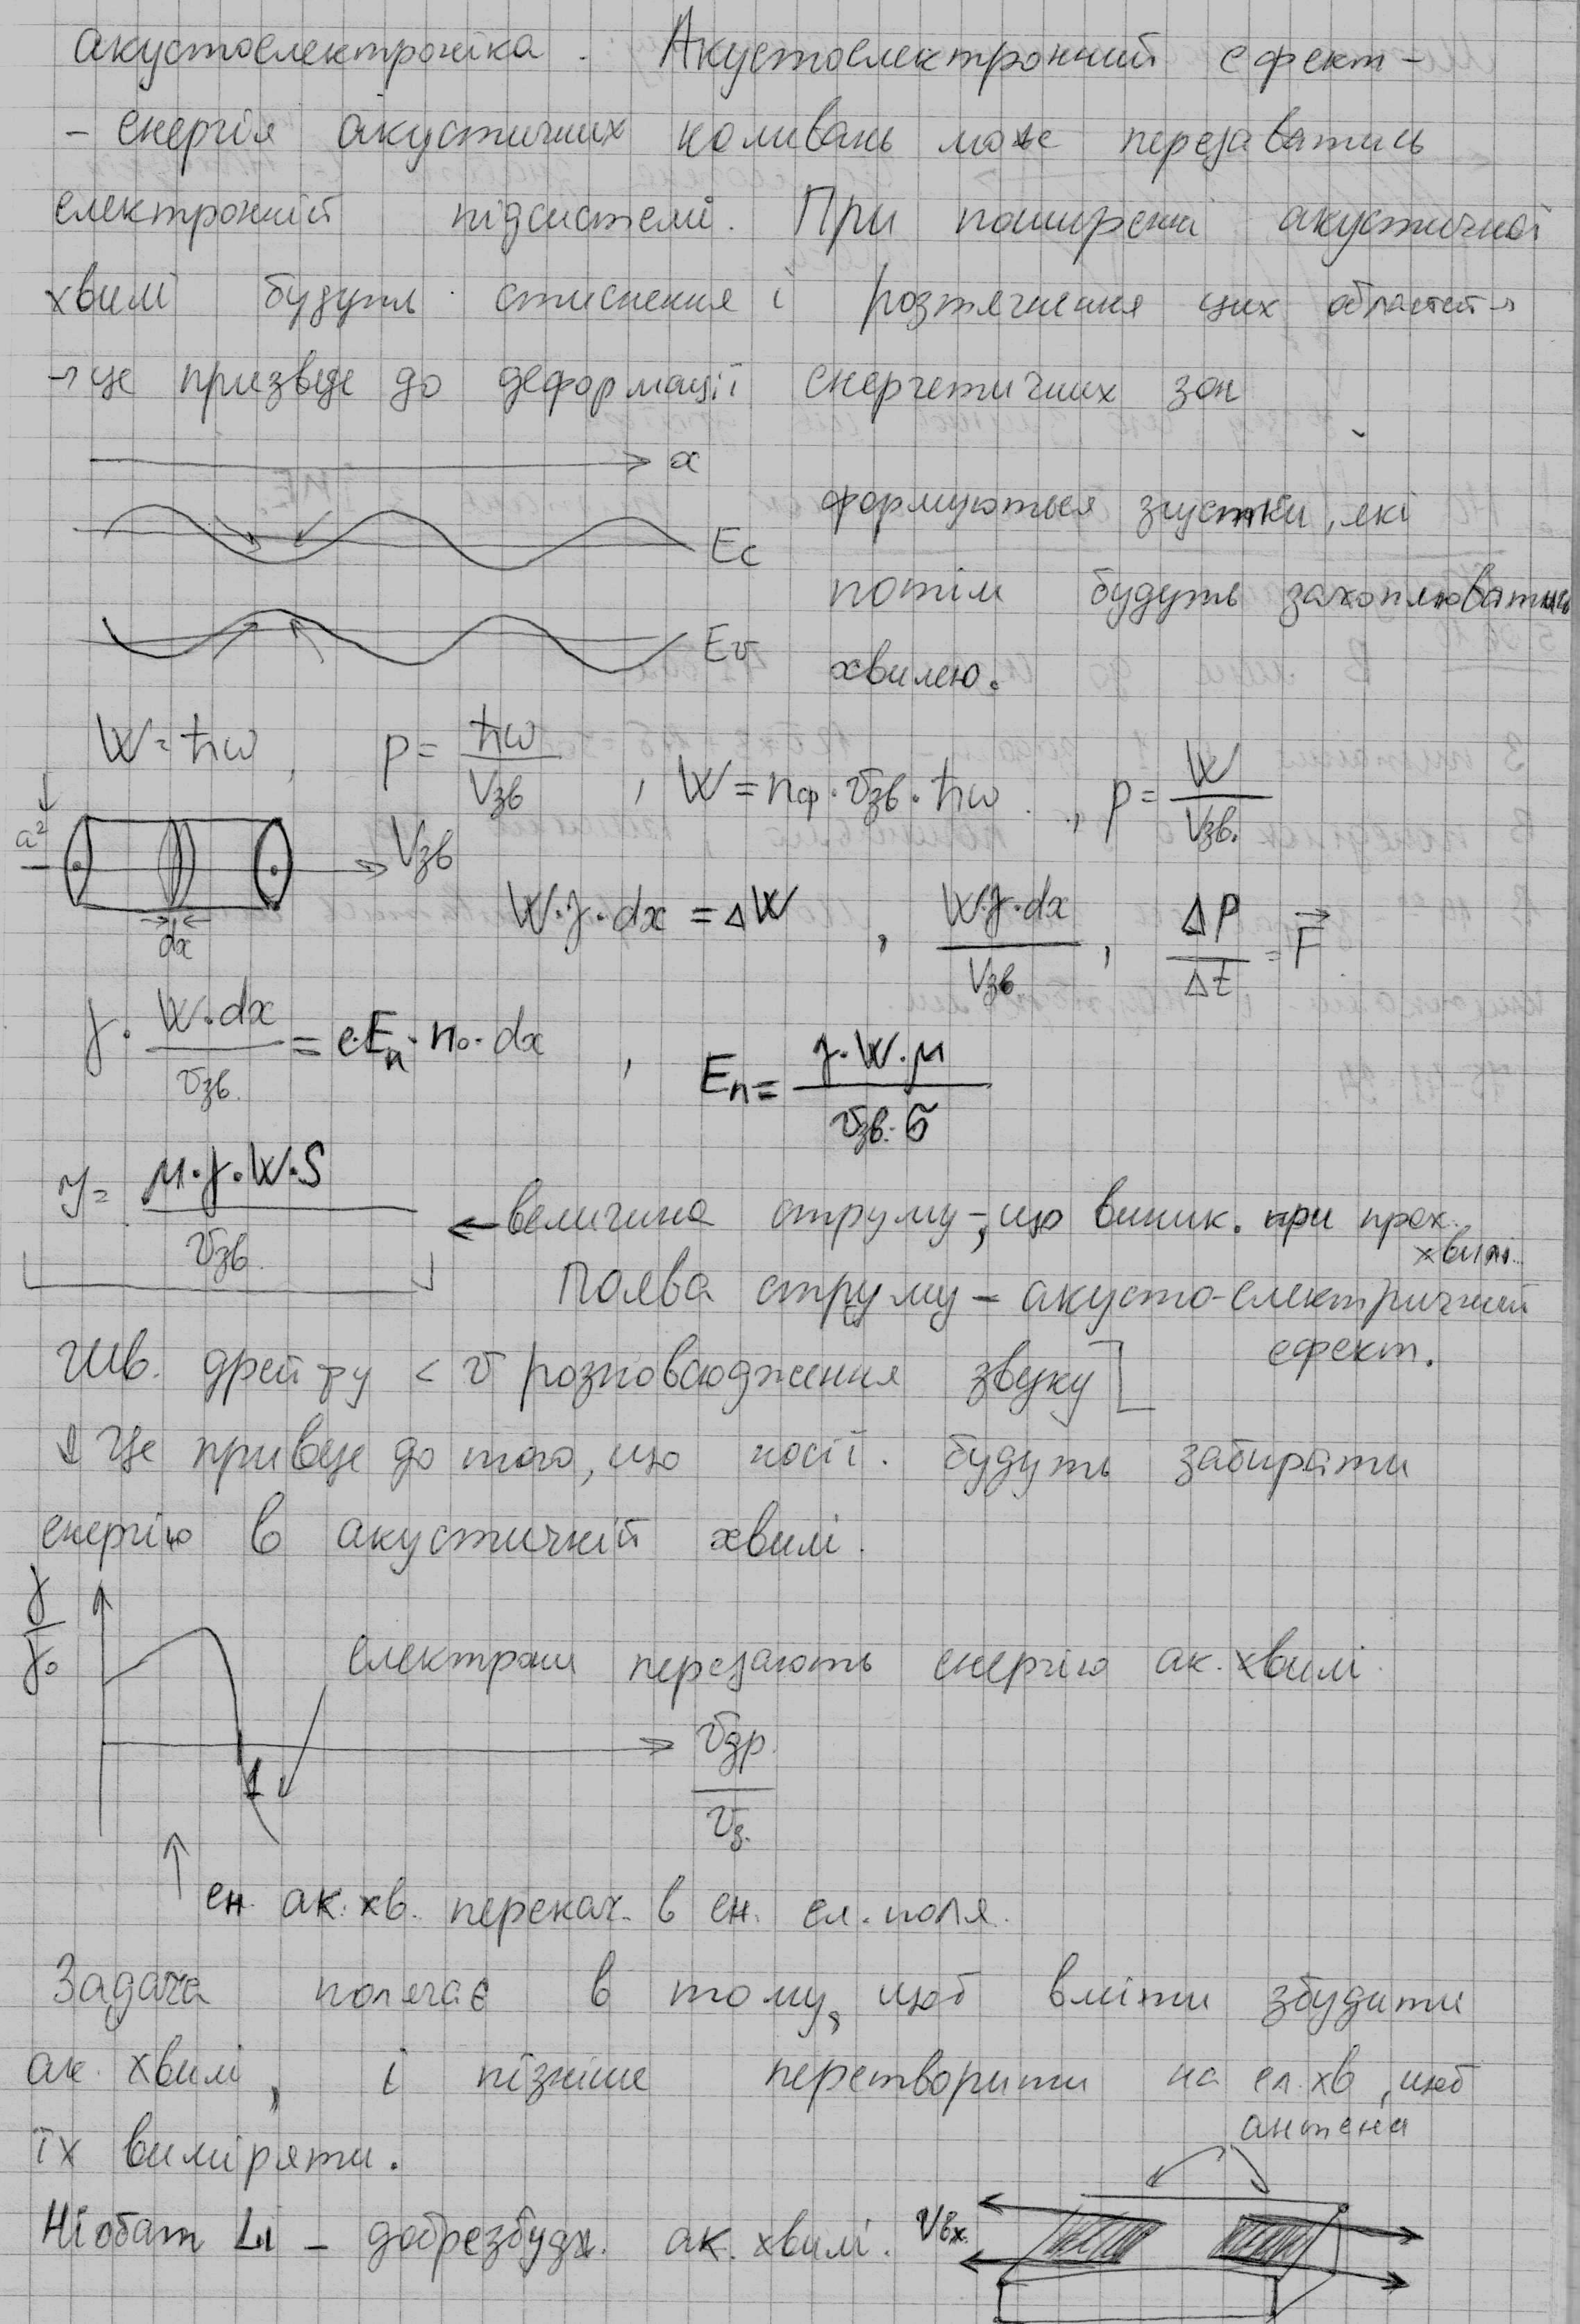 акустоелектроніка. Акустоелектронний ефект -
- енергія акустичних коливань може передаватись
електронній підсистемі. При поширенні акустичної
хвилі будуть стиснення і розтягнення цих областей →
→ це призведе до деформації енергетичних зон
x
формуються згустки, які
Ec
потім будуть захоплюватись
Ev
хвилею.
W = ħω, p = ħω / Vзв, W = nф · vзв · ħω, p = W / Vзв.
a² Vзв
dx
W·γ·dx = ΔW, W·γ·dx / Vзв, ΔP / Δt = F⃗
γ · W·dx / vзв. = e·Eп · n₀ · dx, Eп = γ·W·μ / vзв·σ
J = μ·γ·W·S / vзв.
← величина струму, що виник. при прох. хвилі.
Поява струму - акусто-електричний
ефект.
Шв. дрейфу < v розповсюдження звуку
↓ Це приведе до того, що носії. будуть забирати
енергію в акустичній хвилі.
γ / γ₀
електрони передають енергію ак. хвилі.
vдр. / vз.
1
ен. ак. хв. перекач. в ен. ел. поля.
Задача полягає в тому, щоб вміти збудити
ак. хвилі, і пізніше перетворити на ел. хв, щоб
їх виміряти.
антена
Ніобат Li - добре збудж. ак. хвилі. Vвх.